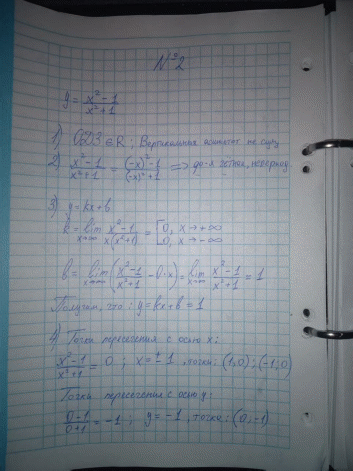 №2
y = x²-1 / x²+1
1) ОДЗ ∈ R; Вертикальных асимптот не сущ.
2) x²-1 / x²+1 = (-x)²-1 / (-x)²+1 ⇒ чётная, непериод.
3) y = kx+b
k = lim x→∞ x²-1 / x(x²+1) = [0, x→+∞
0, x→-∞
b = lim x→∞ (x²-1 / x²+1 - 0·x) = lim x→∞ x²-1 / x²+1 = 1
Получаем, что: y = kx+b = 1
4) Точки пересечения с осью x:
x²-1 / x²+1 = 0; x = ±1, точки: (1,0); (-1;0)
Точки пересечения с осью y:
0-1 / 0+1 = -1; y = -1, точка: (0,-1)